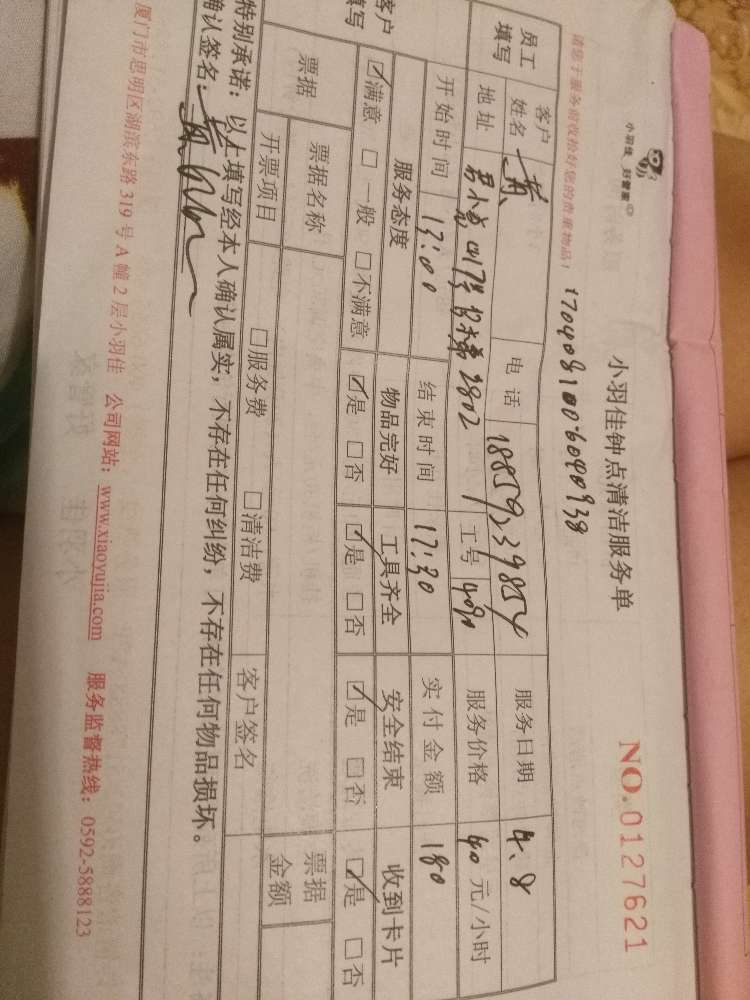 小羽佳 好管家
小羽佳钟点清洁服务单
NO.0127621
请您于服务前收检好您的贵重物品!
170408100-6040938
员工填写
客户姓名 黄 电话 18859239854 服务日期 4.8
地址 417号 2802 工号 4090 服务价格 40 元/小时
开始时间 13:00 结束时间 17:30 实付金额 180
客户填写
服务态度 物品完好 工具齐全 安全结束 收到卡片
☑满意 □一般 □不满意 ☑是 □否 ☑是 □否 ☑是 □否 ☑是 □否
票据 票据名称 票据金额
开票项目 □服务费 □清洁费 客户签名
特别承诺:以上填写经本人确认属实,不存在任何纠纷,不存在任何物品损坏。
确认签名:
厦门市思明区湖滨东路319号A幢2层小羽佳 公司网站:www.xiaoyujia.com 服务监督热线:0592-5888123